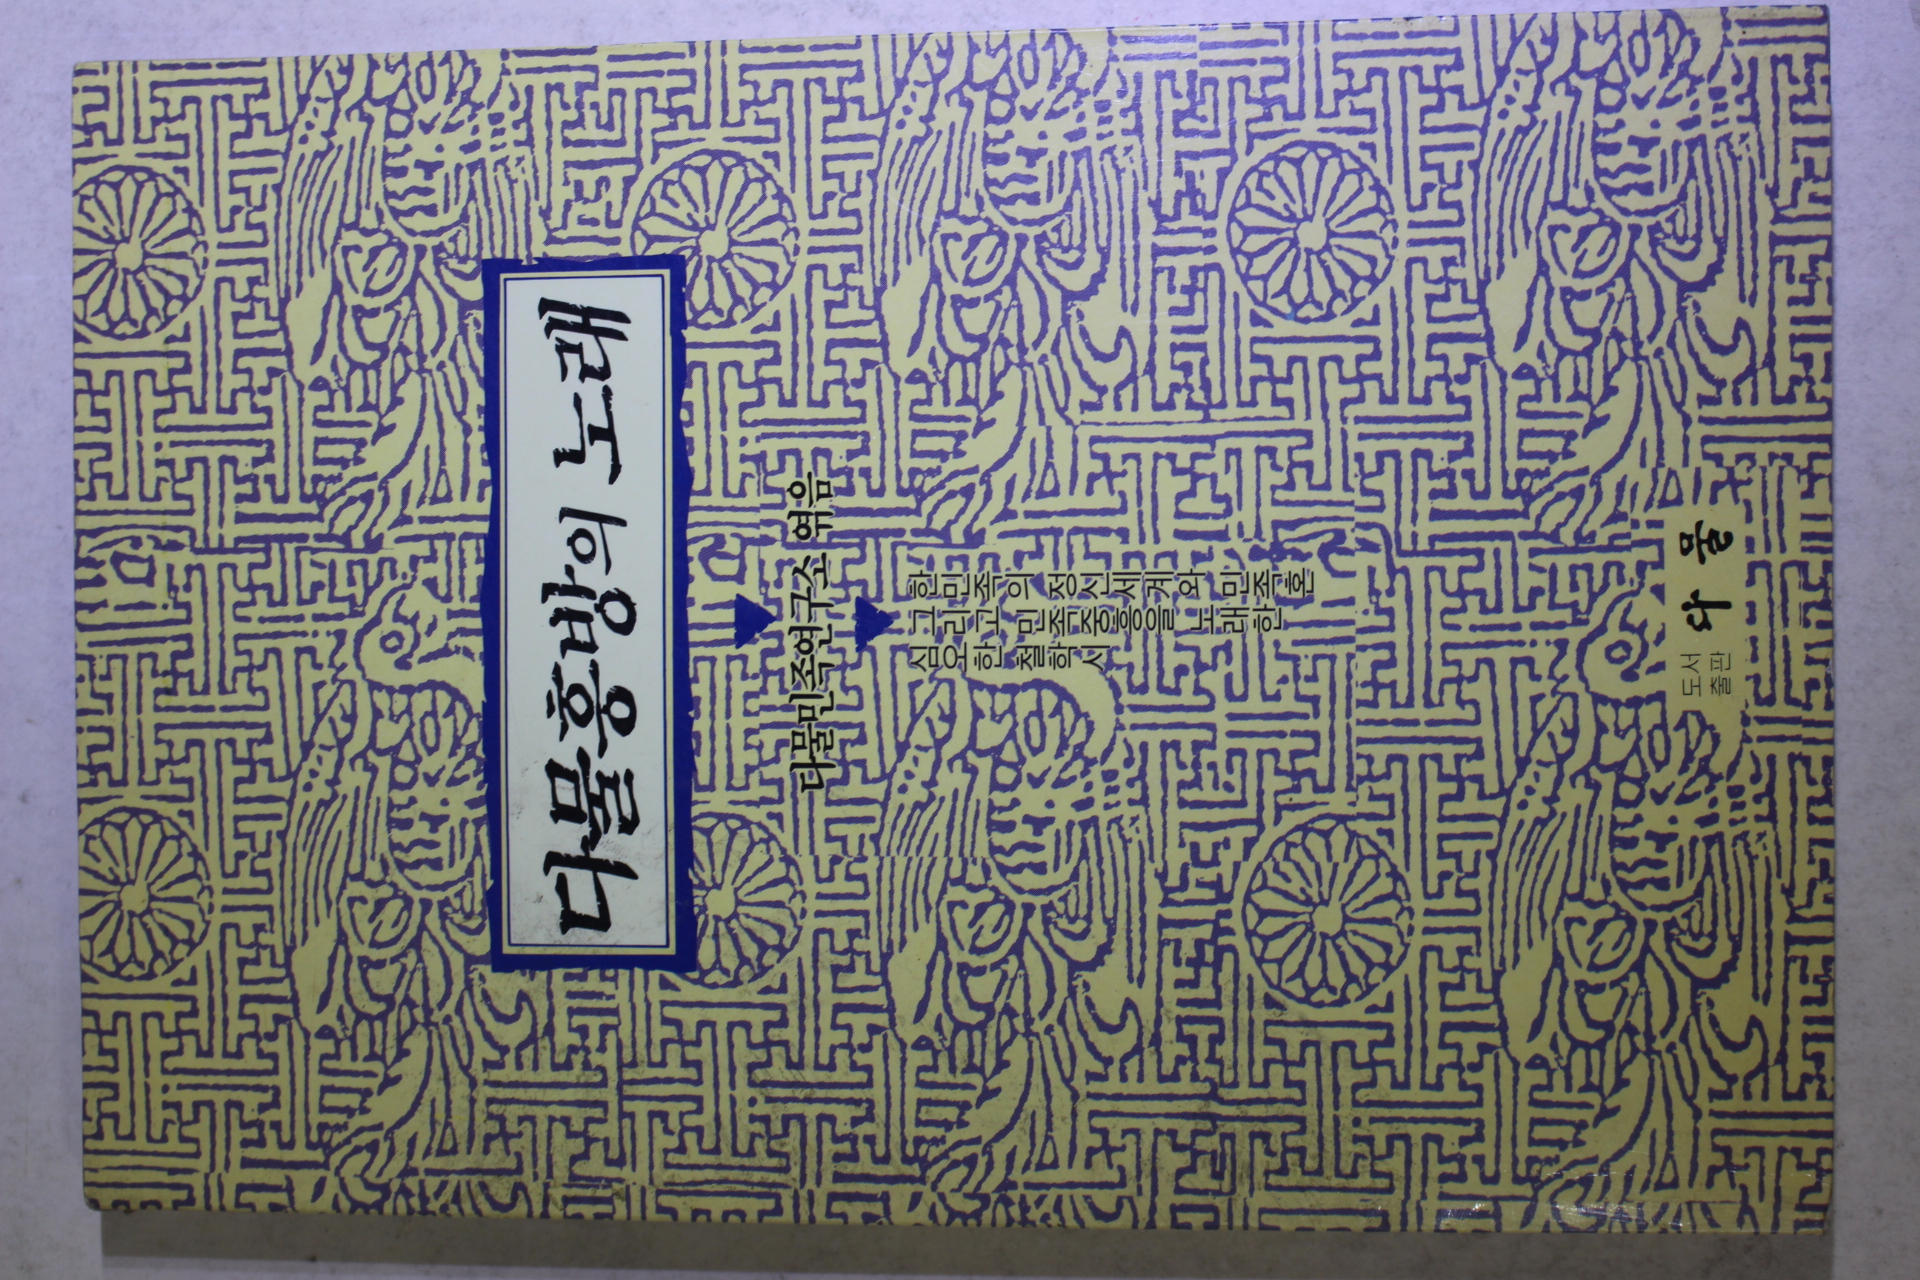 다물흥방의 노래
다물민족연구소 엮음
한민족의 정신세계와 민족혼
그리고 민족중흥을 노래한
심오한 철학시
도서
출판 다물